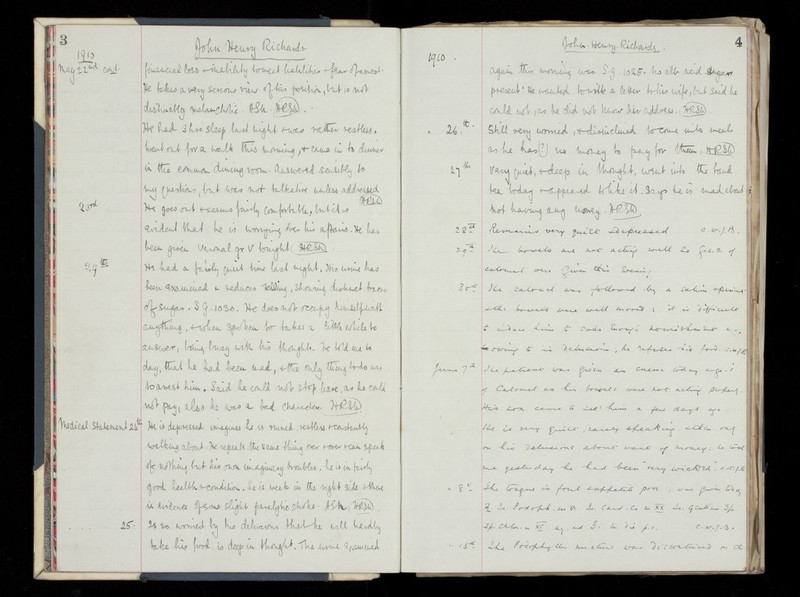 3
1910
John Henry Richards
May 22nd cont.
financial loss & inability to meet liabilities & fear of arrest.
He takes a very serious view of his position, but is not
distinctly melancholic.
He had 3 hrs sleep last night & was rather restless.
Went out for a walk this morning, & came in to dinner
in the common dining room. Answered sensibly to
my questions, but was not talkative unless addressed
23rd
He goes out & seems fairly comfortable, but it is
evident that he is worrying over his affairs. He has
been given Veronal gr V tonight.
24th
He had a fairly quiet time last night. His urine has
been examined & reduces Fehling, showing distinct traces
of sugar. S.G. 1030. He does not occupy himself with
anything, & when spoken to takes a little while to
answer, being busy with his thoughts. He told me to
day, that he had been mad, & the only thing to do was
to arrest him. Said he could not stop here, as he could
not pay, also he was a bad character.
Medical Statement
He is depressed imagines he is ruined, restless & constantly
walking about. He repeats the same thing over & over & can speak
of nothing but his own imaginary troubles, he is in fairly
good health & condition. he is weak in the right side & there
is evidence of some slight paralytic stroke.
25.
Is so worried by his delusions that he will hardly
take his food, is deep in thought. The urine examined
4
1910.
John Henry Richards.
again this morning was S.G. 1025. No alb: acid sugar
present. He wanted to write a letter to his wife, but said he
could not, as he did not know her address.
26.th
Still very worried, & disinclined to come into meals
as he has no money to pay for them.
27th
Very quiet, & deep in thought, went into the
tea today & appeared to like it. Says he is mad about
not having any money.
28th
Remains very quiet & depressed C.W.J.B.
29th
The bowels are not acting well so grs 2 of
calomel were given this evening
30th
The calomel was followed by a saline aperient
& the bowels were well moved: it is difficult
to induce him to take enough nourishment
owing to his delusions, he refuses his food.
June 7th
The patient was given an enema today
of Calomel as his bowels were not acting properly.
His son came to see him a few days ago
He is very quiet, rarely speaking
on his delusions about want of money: he told
me yesterday he had been very wicked.
8th
The tongue is foul appetite poor, was given today
C.W.J.B.
15th
The Podophyllin mixture was discontinued on the